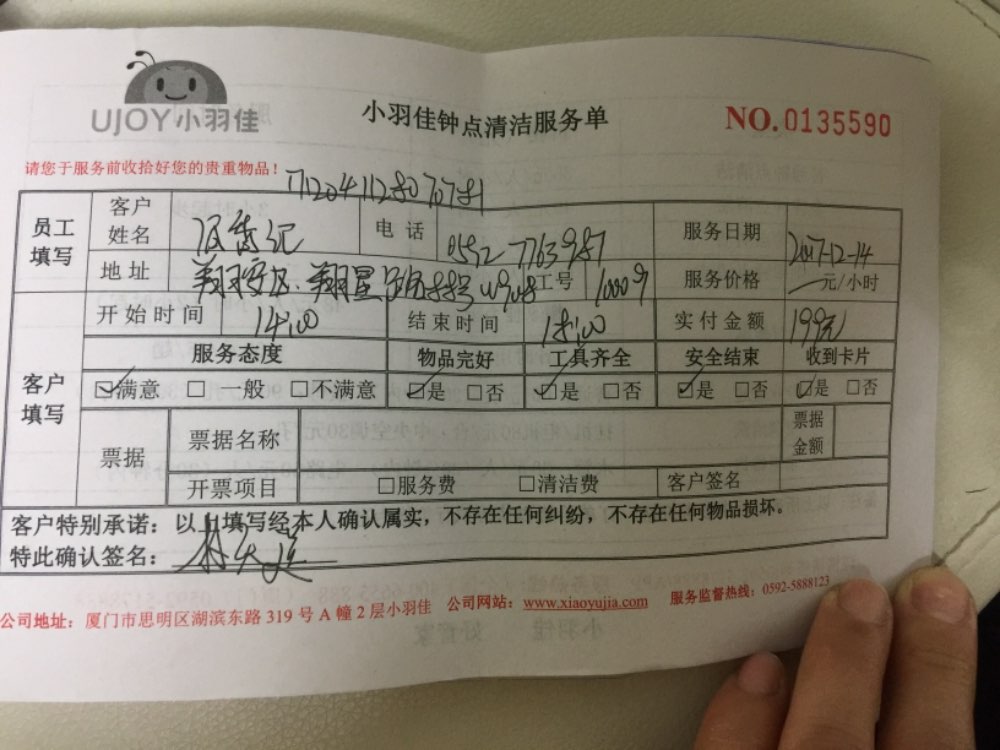 UJOY小羽佳
小羽佳钟点清洁服务单
NO.0135590
请您于服务前收拾好您的贵重物品！
员工填写 客户姓名 电话 0592-7763987 服务日期 2017-12-14
地址 翔安区.翔星 工号 10009 服务价格 元/小时
开始时间 14:00 结束时间 18:00 实付金额 199元
客户填写 服务态度 物品完好 工具齐全 安全结束 收到卡片
☑满意 □一般 □不满意 ☑是 □否 ☑是 □否 ☑是 □否 ☑是 □否
票据 票据名称 票据金额
开票项目 □服务费 □清洁费 客户签名
客户特别承诺：以上填写经本人确认属实，不存在任何纠纷，不存在任何物品损坏。
特此确认签名：
公司地址：厦门市思明区湖滨东路 319 号 A 幢 2 层小羽佳 公司网站：www.xiaoyujia.com 服务监督热线：0592-5888123